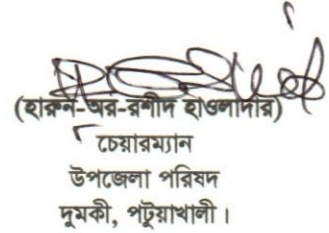 (হারুন-অর-রশীদ হাওলাদার)
চেয়ারম্যান
উপজেলা পরিষদ
দুমকী, পটুয়াখালী।